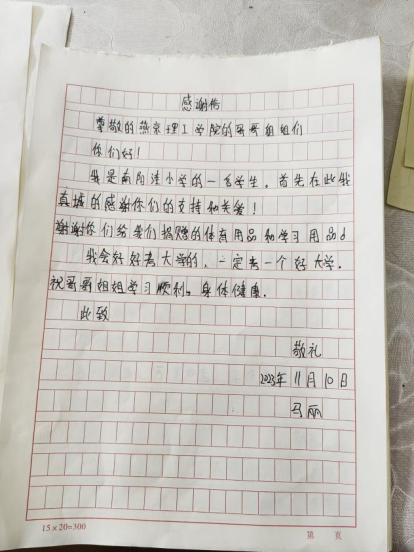 感谢信
尊敬的燕京理工学院的哥哥姐姐们
你们好!
我是南阳洼小学的一名学生。首先在此我
真城的感谢你们的支持和关爱!
谢谢你们给我们捐赠的体育用品和学习用品。
我会好好考大学的,一定考一个好大学。
祝哥哥姐姐学习顺利,身体健康。
此致
敬礼
2023年11月10日
马丽
15×20=300
第 页